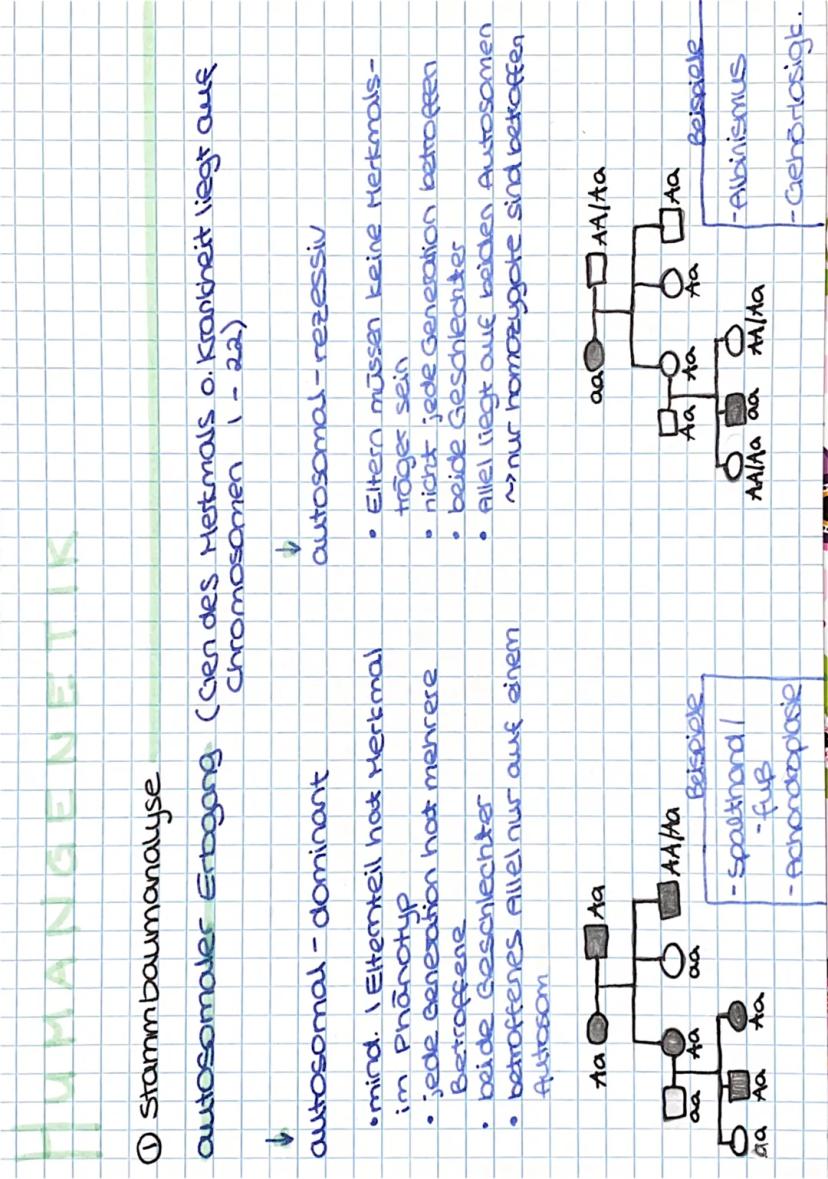 HUMANGENETIK
① Stammbaumanalyse
autosomaler Erbgang (Gen des Merkmals o. Krankheit liegt auf
Chromosomen 1-22)
↓
autosomal-dominant
• mind. 1 Elternteil hat Merkmal
im Phänotyp
• jede Generation hat mehrere
Betroffene
• beide Geschlechter
• betroffenes Allel nur auf einem
Autosom
Aa Aa
aa Aa aa AA/Aa
aa Aa Aa
Beispiele
- Spalthand/
-fuß
- Achondroplasie
↓
autosomal-rezessiv
• Eltern müssen keine Merkmals-
träger sein
• nicht jede Generation betroffen
• beide Geschlechter
• Allel liegt auf beiden Autosomen
~> nur homozygote sind betroffen
aa AA/Aa
Aa Aa Aa Aa
AA/Aa aa AA/Aa
Beispiele
- Albinismus
- Gehörlosigk.